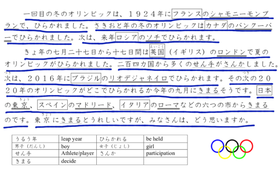 一回目の冬のオリンピックは、1924年にフランスのシャモニーモンブ
ランで、ひらかれました。ききねんとその冬のオリンピックはカナダのバンクーバ
ーでひらかれました。次は、来年ロシアのソチでひらかれます。
きょ年の七月二十七日から十七日間は英国（イギリス）のロンドンで夏のオ
リンピックがひらかれました。二百四カ国から多くのせん手がさんかしました。
次は、2016年にブラジルのリオデジャネイロでひらかれます。その次の20
20年のオリンピックがどこでひらかれるか今年の九月にきまるそうです。日本
の東京、スペインのマドリード、イタリアのローマなどの六つの市からきまる
のです。東京にきまるとうれしいですが、みなさんは、どう思いますか。
うるう年 leap year ひらかれる be held
男子（だんし） boy 女子（じょし） girl
せん手 Athlete/player さんか participation
きまる decide